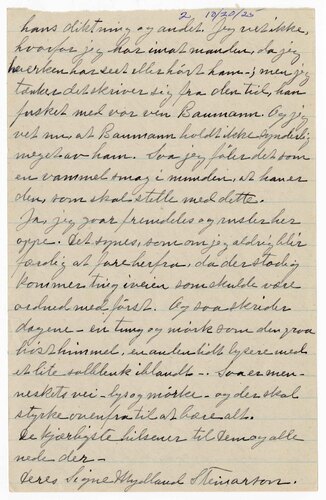 2 10/20/25
hans diktning og andet. Jeg vet ikke,
hvorfor jeg har imot manden, da jeg
hverken har set eller hört ham; men jeg
tænker det skriver sig fra den tid, han
fusket med vor ven Baumann. Og jeg
vet nu, at Baumann holdt ikke synderlig
meget av ham. Saa jeg föler det som
en vammel smag i munden, at han er
den, som skal stelle med dette.
Ja, jeg gaar fremdeles og rusler her
oppe. Det synes, som om jeg aldrig blir
færdig at fare herfra, da der stadig
kommer ting i veien som skulde være
ordned med först. Og saa skrider
dagene – en tung og mörk som den graa
hösthimmel, en anden lidt lysere med
et lite solblenk iblandt –. Saa er men-
neskets vei – lys og mörke – og der skal
styrke ovenfra til at bære alt.
De kjærligste hilsener til Dem og alle
nede der –
Deres Signe Mydland Steinarson.